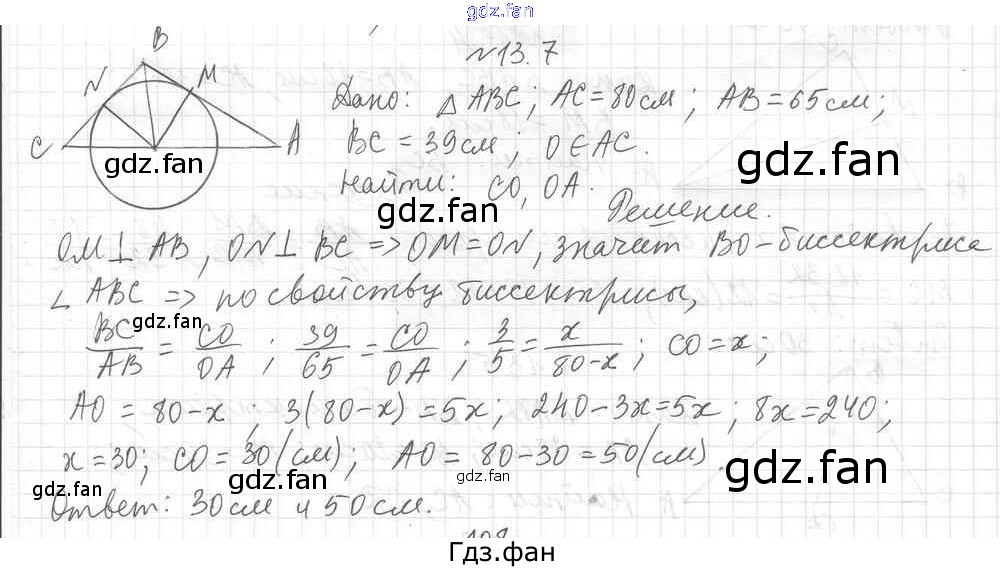 gdz.fan
№13.7
B
N M
C A
gdz.fan
Дано: △ ABC; AC = 80 см; AB = 65 см;
gdz.fan
BC = 39 см; O ∈ AC.
gdz.fan
Найти: CO, OA.
gdz.fan
Решение.
OM ⊥ AB, ON ⊥ BC => OM = ON, значит BO - биссектриса
∠ ABC => по свойству биссектрисы,
gdz.fan
BC/AB = CO/OA; 39/65 = CO/OA; 3/5 = x/80-x; CO = x;
gdz.fan
AO = 80-x; 3(80-x) = 5x; 240-3x=5x; 8x=240;
x = 30; CO = 30 (см); AO = 80-30 = 50 (см).
gdz.fan gdz.fan gdz.fan gdz.fan
Ответ: 30 см и 50 см.
Гдз.фан